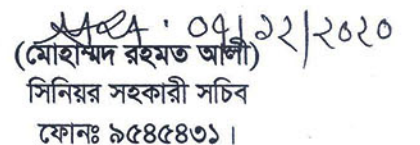 ০৭/১২/২০২০
(মোহাম্মদ রহমত আলী)
সিনিয়র সহকারী সচিব
ফোনঃ ৯৫৪৫৪৩১।